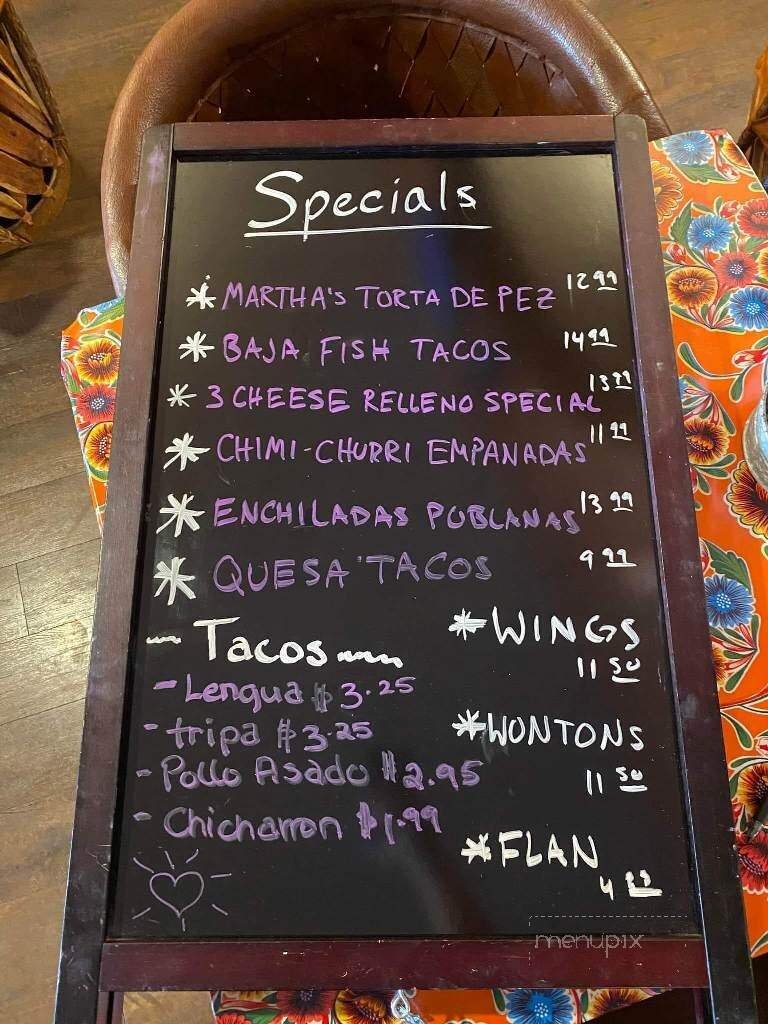 Specials
* MARTHA'S TORTA DE PEZ 12 99
* BAJA FISH TACOS 14 99
* 3 CHEESE RELLENO SPECIAL 13 99
* CHIMI-CHURRI EMPANADAS 11 99
* ENCHILADAS POBLANAS 13 99
* QUESA TACOS 9 99
~ Tacos ~
- Lengua $ 3.25
- tripa $3.25
- Pollo Asado $2.95
- Chicharron $1.99
* WINGS
11 50
* WONTONS
11 50
* FLAN
4 99
menupix